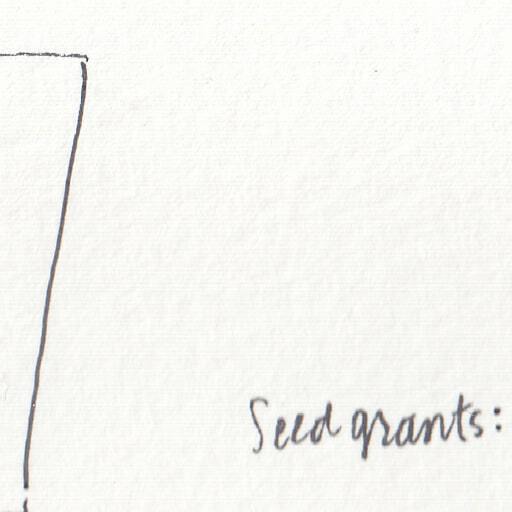 Seed grants: